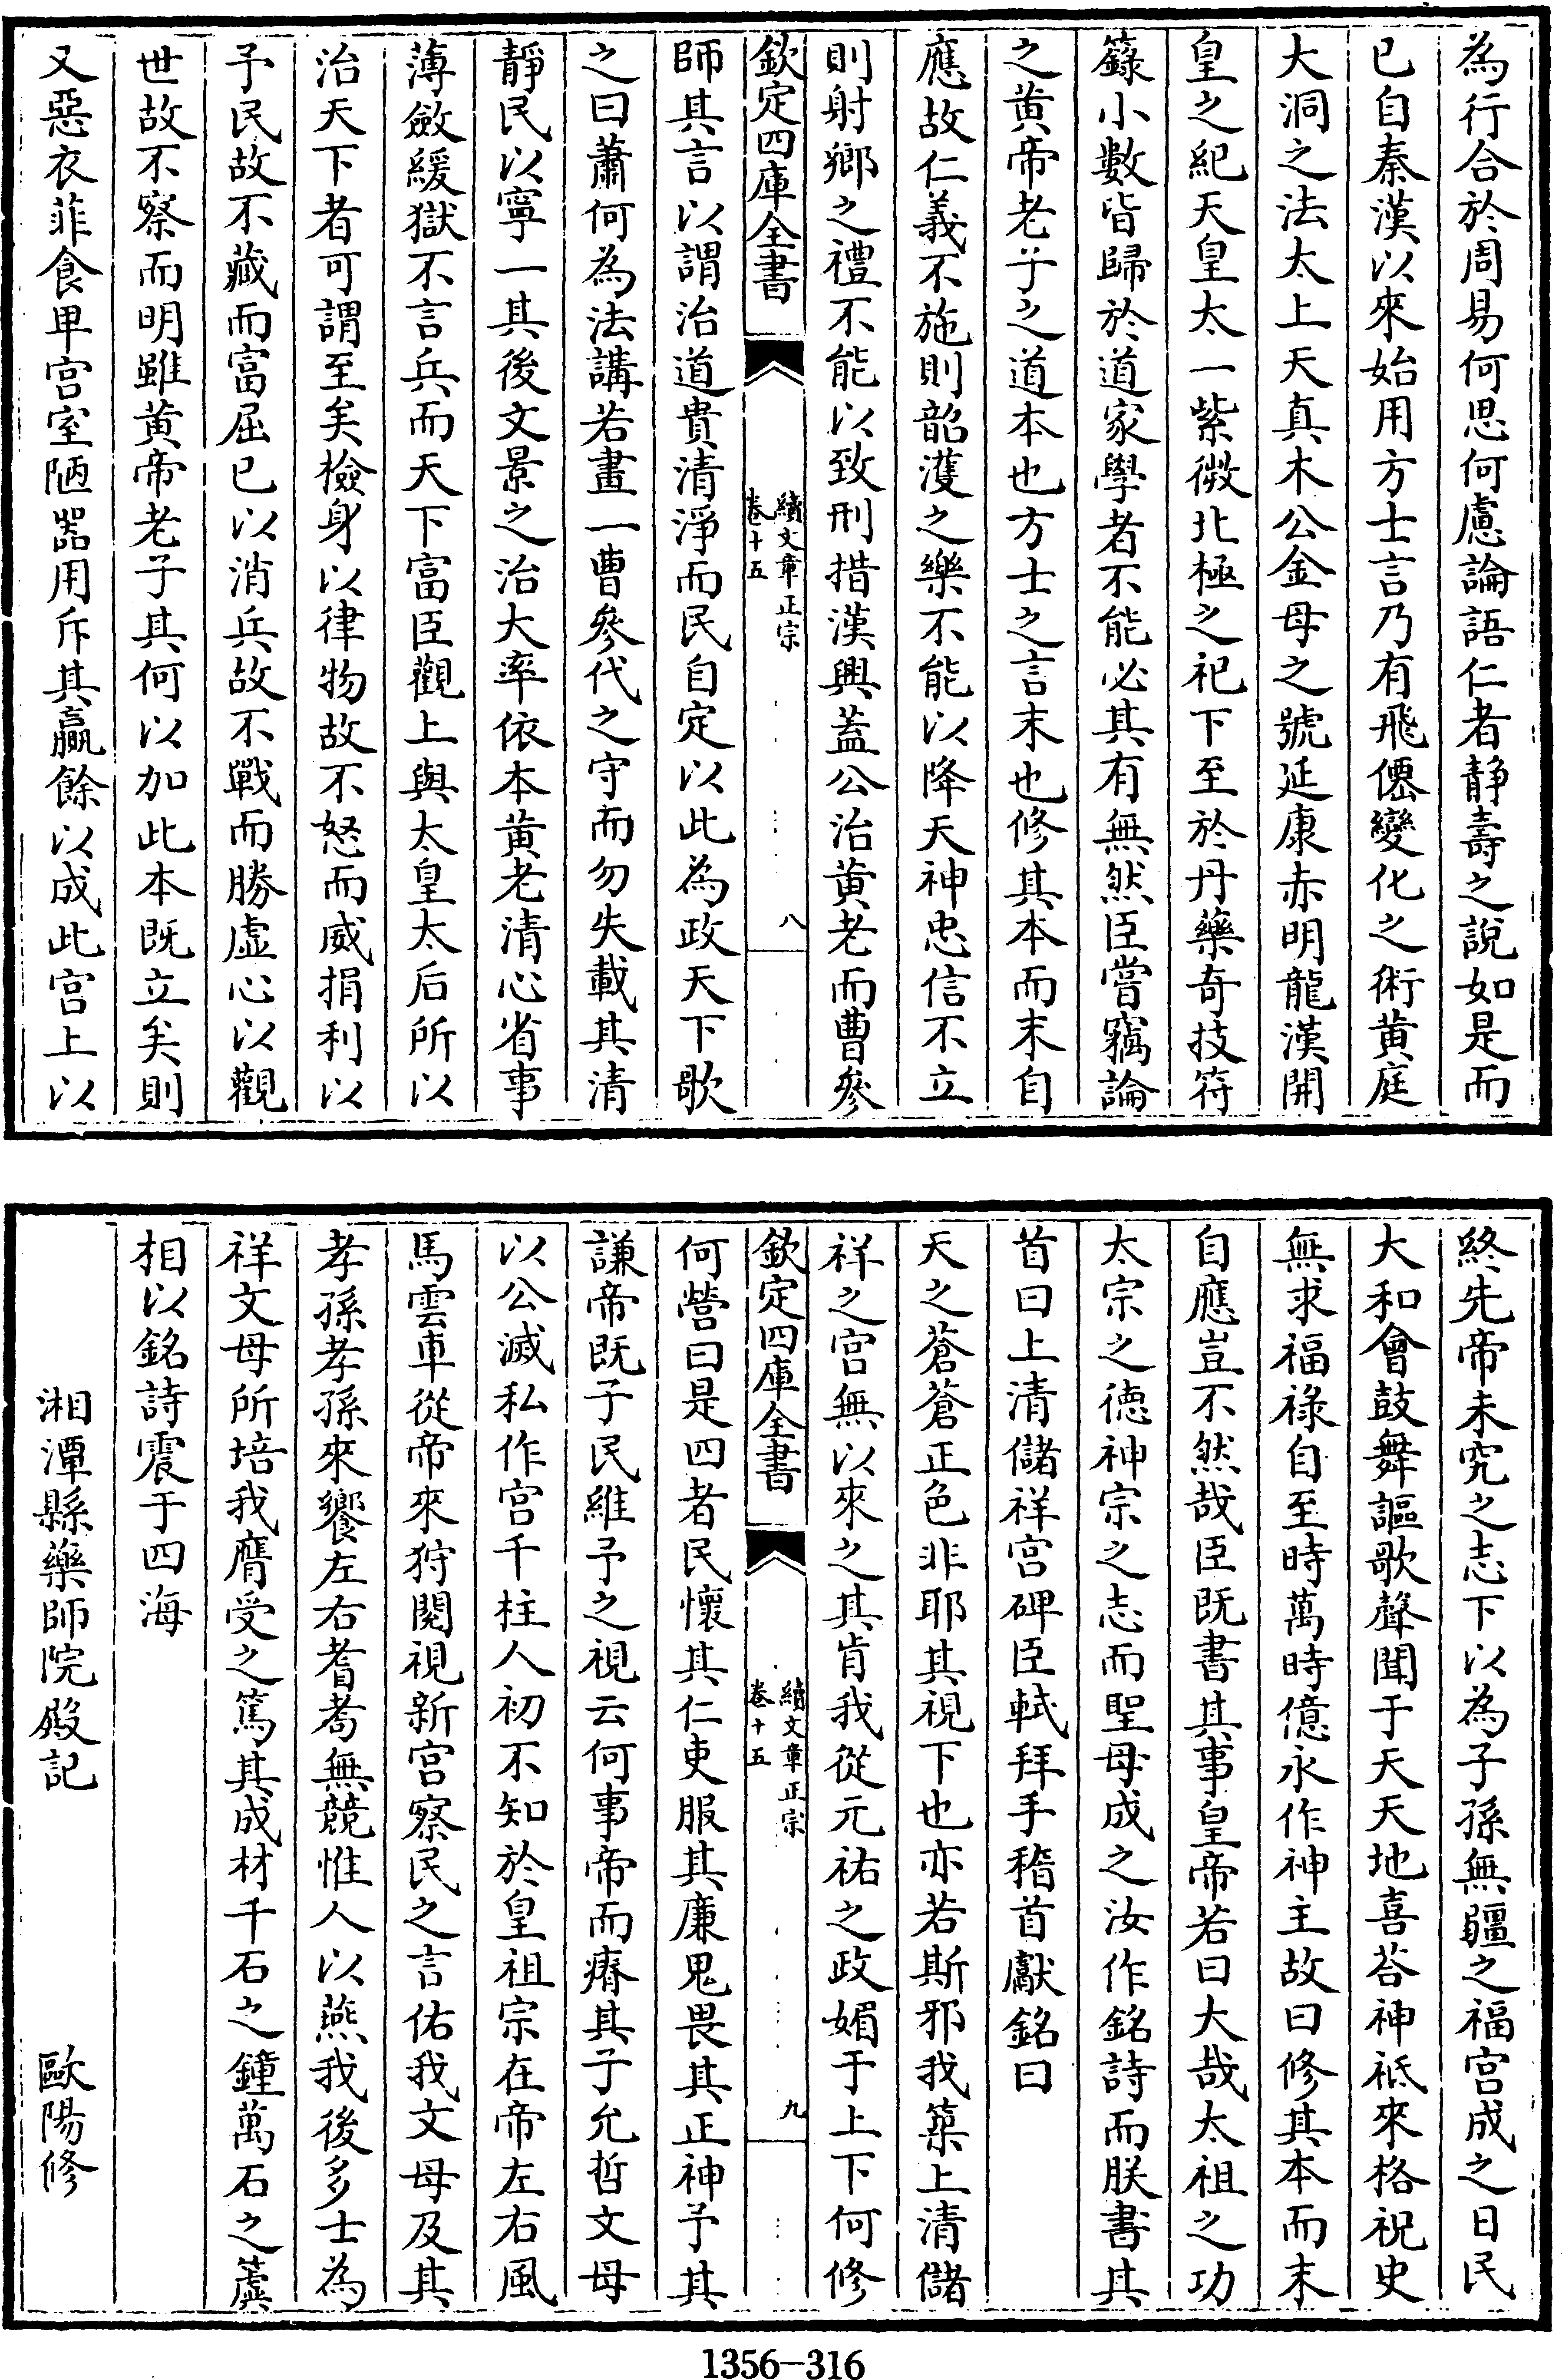 為行合於周易何思何慮論語仁者靜壽之說如是而
已自秦漢以來始用方士言乃有飛僊變化之術黄庭
大洞之法太上天真木公金母之號延康赤明龍漢開
皇之紀天皇太一紫微北極之祀下至於丹藥奇技符
籙小數皆歸於道家學者不能必其有無然臣嘗竊論
之黄帝老子之道本也方士之言末也修其本而末自
應故仁義不施則韶濩之樂不能以降天神忠信不立
則射鄉之禮不能以致刑措漢興蓋公治黄老而曹參
欽定四庫全書
續文章正宗
卷十五
八
師其言以謂治道貴清淨而民自定以此為政天下歌
之曰蕭何為法講若畫一曹參代之守而勿失載其清
靜民以寧一其後文景之治大率依本黄老清心省事
薄斂緩獄不言兵而天下富臣觀上與太皇太后所以
治天下者可謂至矣檢身以律物故不怒而威捐利以
予民故不藏而富屈已以消兵故不戰而勝虛心以觀
世故不察而明雖黄帝老子其何以加此本既立矣則
又惡衣菲食卑宫室陋器用斥其贏餘以成此宫上以
終先帝未究之志下以為子孫無疆之福宫成之日民
大和會鼓舞謳歌聲聞于天天地喜荅神祗來格祝史
無求福祿自至時萬時億永作神主故曰修其本而末
自應豈不然哉臣既書其事皇帝若曰大哉太祖之功
太宗之德神宗之志而聖母成之汝作銘詩而朕書其
首曰上清儲祥宫碑臣軾拜手稽首獻銘曰
天之蒼蒼正色非耶其視下也亦若斯邪我築上清儲
祥之宫無以來之其肯我從元祐之政媚于上下何修
欽定四庫全書
續文章正宗
卷十五
九
何營曰是四者民懷其仁吏服其廉鬼畏其正神予其
謙帝既子民維予之視云何事帝而瘠其子允哲文母
以公滅私作宫千柱人初不知於皇祖宗在帝左右風
馬雲車從帝來狩閱視新宫察民之言佑我文母及其
孝孫孝孫來饗左右耆耇無競惟人以燕我後多士為
祥文母所培我膺受之篤其成材千石之鐘萬石之簴
相以銘詩震于四海
湘潭縣藥師院殿記
歐陽修
1356-316